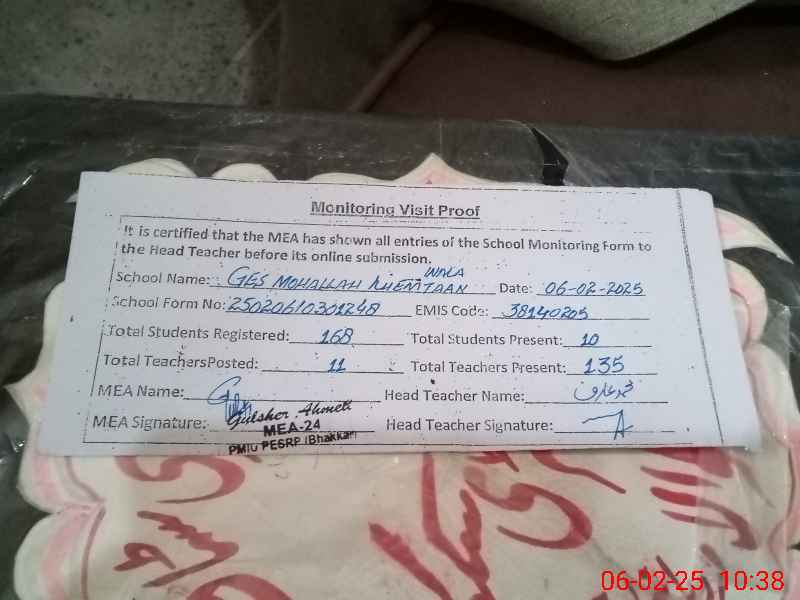 Monitoring Visit Proof
It is certified that the MEA has shown all entries of the School Monitoring Form to
the Head Teacher before its online submission.
School Name: GES MOHALLAH KHEMTAAN WALA Date: 06-02-2025
School Form No: 25020610301248 EMIS Code: 38140205
Total Students Registered: 168 Total Students Present: 10
Total TeachersPosted: 11 Total Teachers Present: 135
MEA Name: Head Teacher Name:
MEA Signature: Gulsher Ahmed Head Teacher Signature:
MEA-24
PMIU PESRP (Bhakkar)
06-02-25 10:38